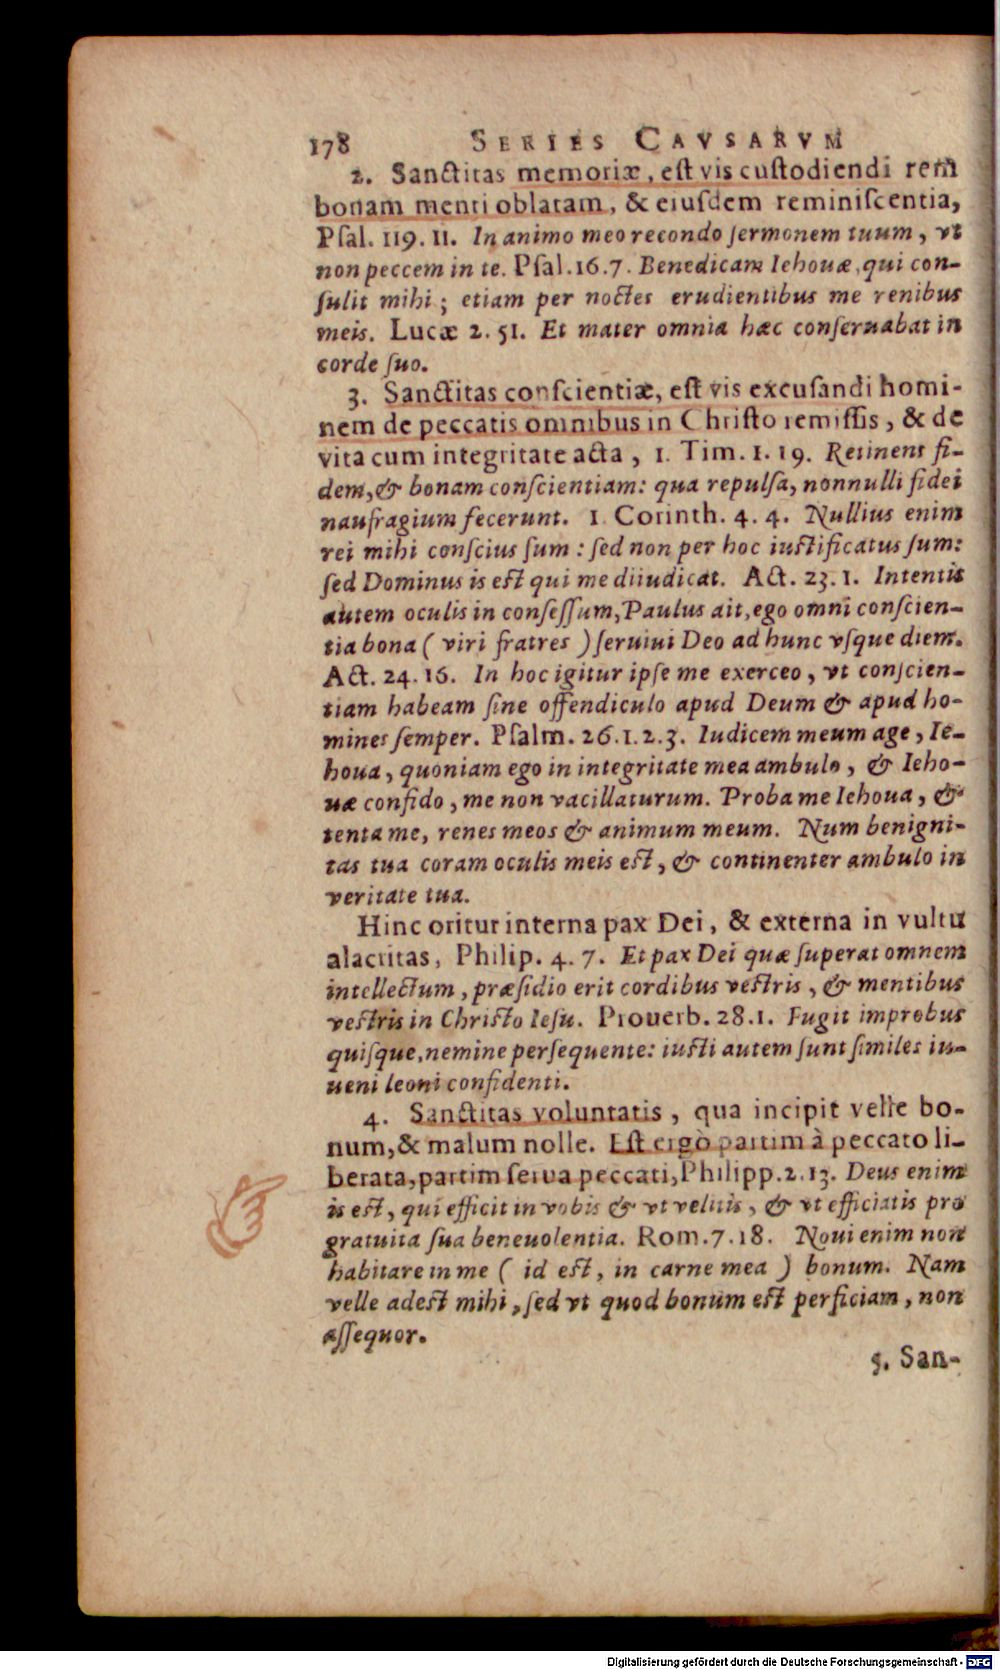 178 SERIES CAVSARVM
2. Sanctitas memoriæ, est vis custodiendi rem
bonam menti oblatam, & eiusdem reminiscentia,
Psal. 119. 11. In animo meo recondo sermonem tuum, vt
non peccem in te. Psal. 16. 7. Benedicam Iehouæ, qui con-
sulit mihi; etiam per noctes erudientibus me renibus
meis. Lucæ 2. 51. Et mater omnia hæc conseruabat in
corde suo.
3. Sanctitas conscientiæ, est vis excusandi homi-
nem de peccatis omnibus in Christo remissis, & de
vita cum integritate acta, 1. Tim. 1. 19. Retinens fi-
dem, & bonam conscientiam: qua repulsa, nonnulli fidei
naufragium fecerunt. 1 Corinth. 4. 4. Nullius enim
rei mihi conscius sum: sed non per hoc iustificatus sum:
sed Dominus is est qui me diiudicat. Act. 23. 1. Intentis
autem oculis in consessum, Paulus ait, ego omni conscien-
tia bona ( viri fratres ) seruiui Deo ad hunc vsque diem.
Act. 24. 16. In hoc igitur ipse me exerceo, vt conscien-
tiam habeam sine offendiculo apud Deum & apud ho-
mines semper. Psalm. 26. 1. 2. 3. Iudicem meum age, Ie-
houa, quoniam ego in integritate mea ambulo, & Ieho-
uæ confido, me non vacillaturum. Proba me Iehoua, &
tenta me, renes meos & animum meum. Num benigni-
tas tua coram oculis meis est, & continenter ambulo in
veritate tua.
Hinc oritur interna pax Dei, & externa in vultu
alacritas, Philip. 4. 7. Et pax Dei quæ superat omnem
intellectum, præsidio erit cordibus vestris, & mentibus
vestris in Christo Iesu. Prouerb. 28. 1. Fugit improbus
quisque, nemine persequente: iusti autem sunt similes iu-
ueni leoni confidenti.
4. Sanctitas voluntatis, qua incipit velle bo-
num, & malum nolle. Est ergò partim à peccato li-
berata, partim serua peccati, Philipp. 2. 13. Deus enim
is est, qui efficit in vobis & vt velitis, & vt efficiatis pro
gratuita sua beneuolentia. Rom. 7. 18. Noui enim non
habitare in me ( id est, in carne mea ) bonum. Nam
velle adest mihi, sed vt quod bonum est perficiam, non
assequor.
5. San-
Digitalisierung gefördert durch die Deutsche Forschungsgemeinschaft - DFG